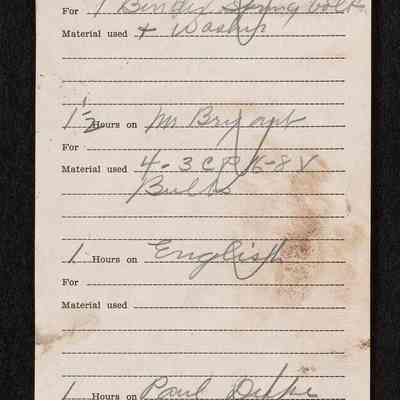 For 1 Binder Spring bolt
Material used + Washer
1 1/2 Hours on Mr Bryant
For
Material used 4 - 3 C P 6-8 V
Bulbs
1 Hours on English
For
Material used
1 Hours on Paul